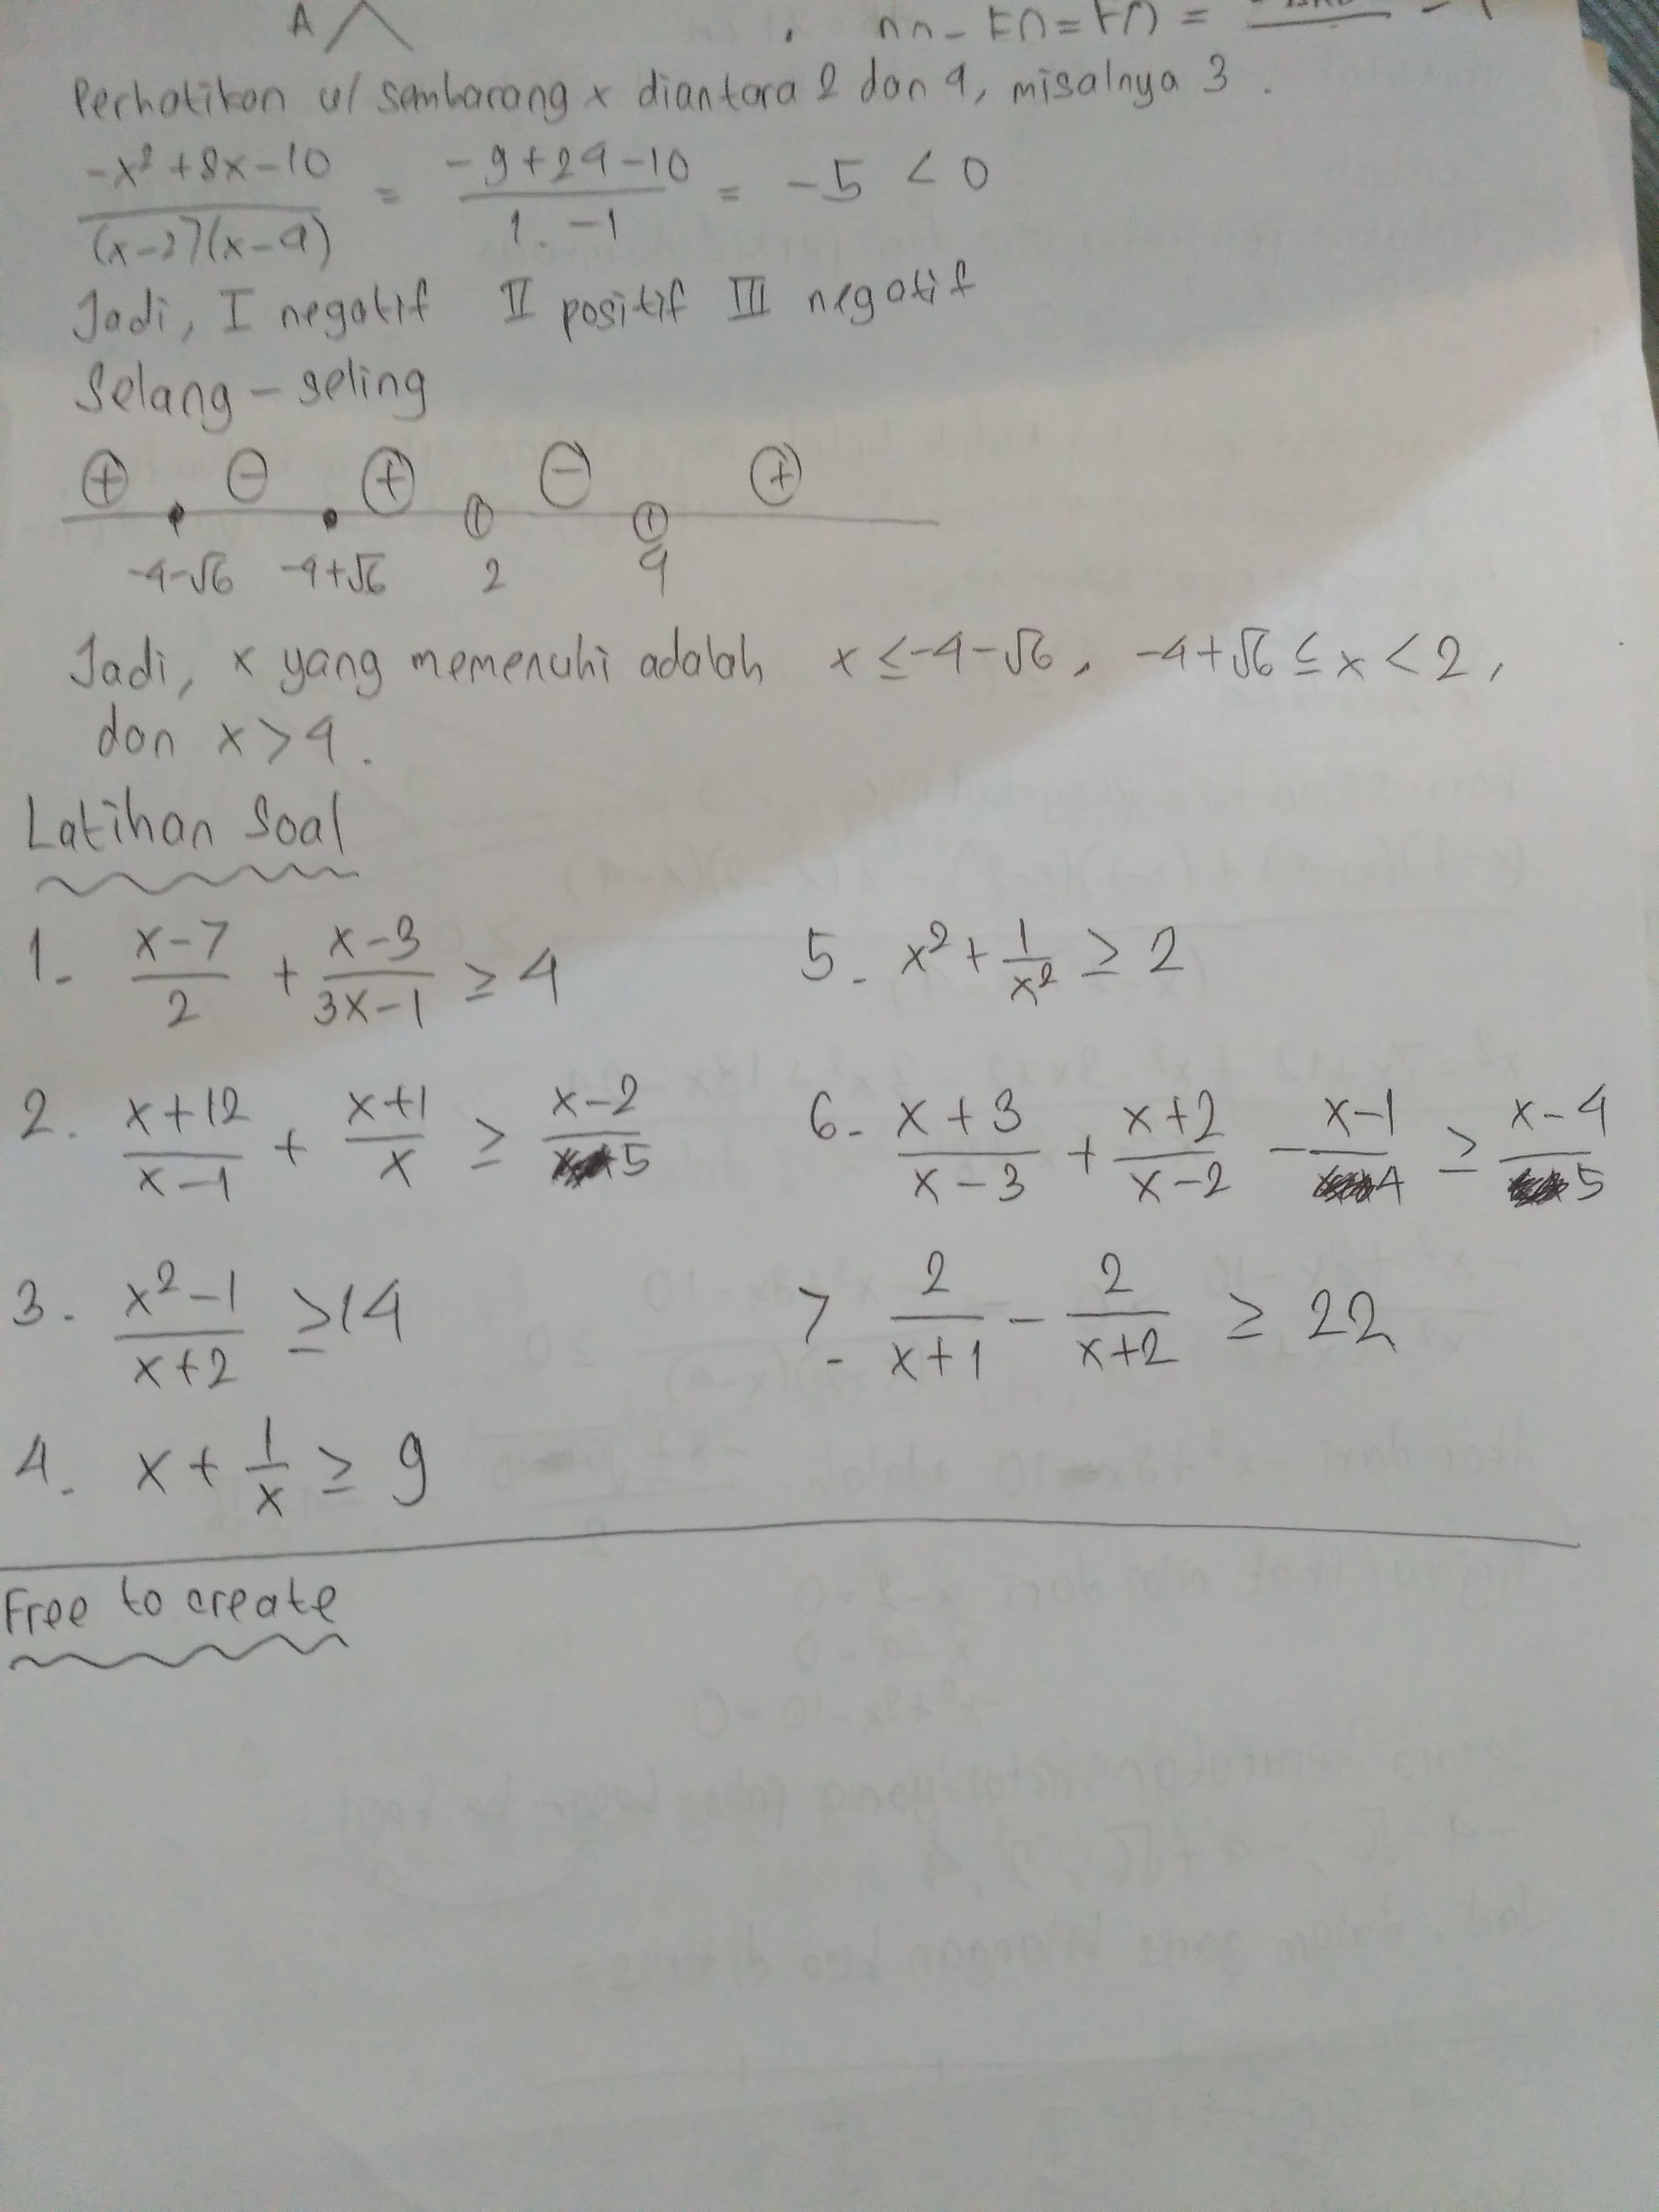 A
Perhatikan u/ sembarang x diantara 2 dan 4, misalnya 3.
-x²+8x-10/(x-2)(x-4) = -9+24-10/1.-1 = -5 < 0
Jadi, I negatif II positif III negatif
Selang-seling
+ - + - +
-4-√6 -4+√6 2 4
Jadi, x yang memenuhi adalah x ≤ -4-√6, -4+√6 ≤ x < 2,
dan x > 4.
Latihan Soal
1. x-7/2 + x-3/3x-1 ≥ 4
2. x+12/x-1 + x+1/x ≥ x-2/5
3. x²-1/x+2 ≥ 14
4. x + 1/x ≥ 9
5. x² + 1/x² ≥ 2
6. x+3/x-3 + x+2/x-2 - x-1/4 ≥ x-4/5
7. 2/x+1 - 2/x+2 ≥ 22
Free to create